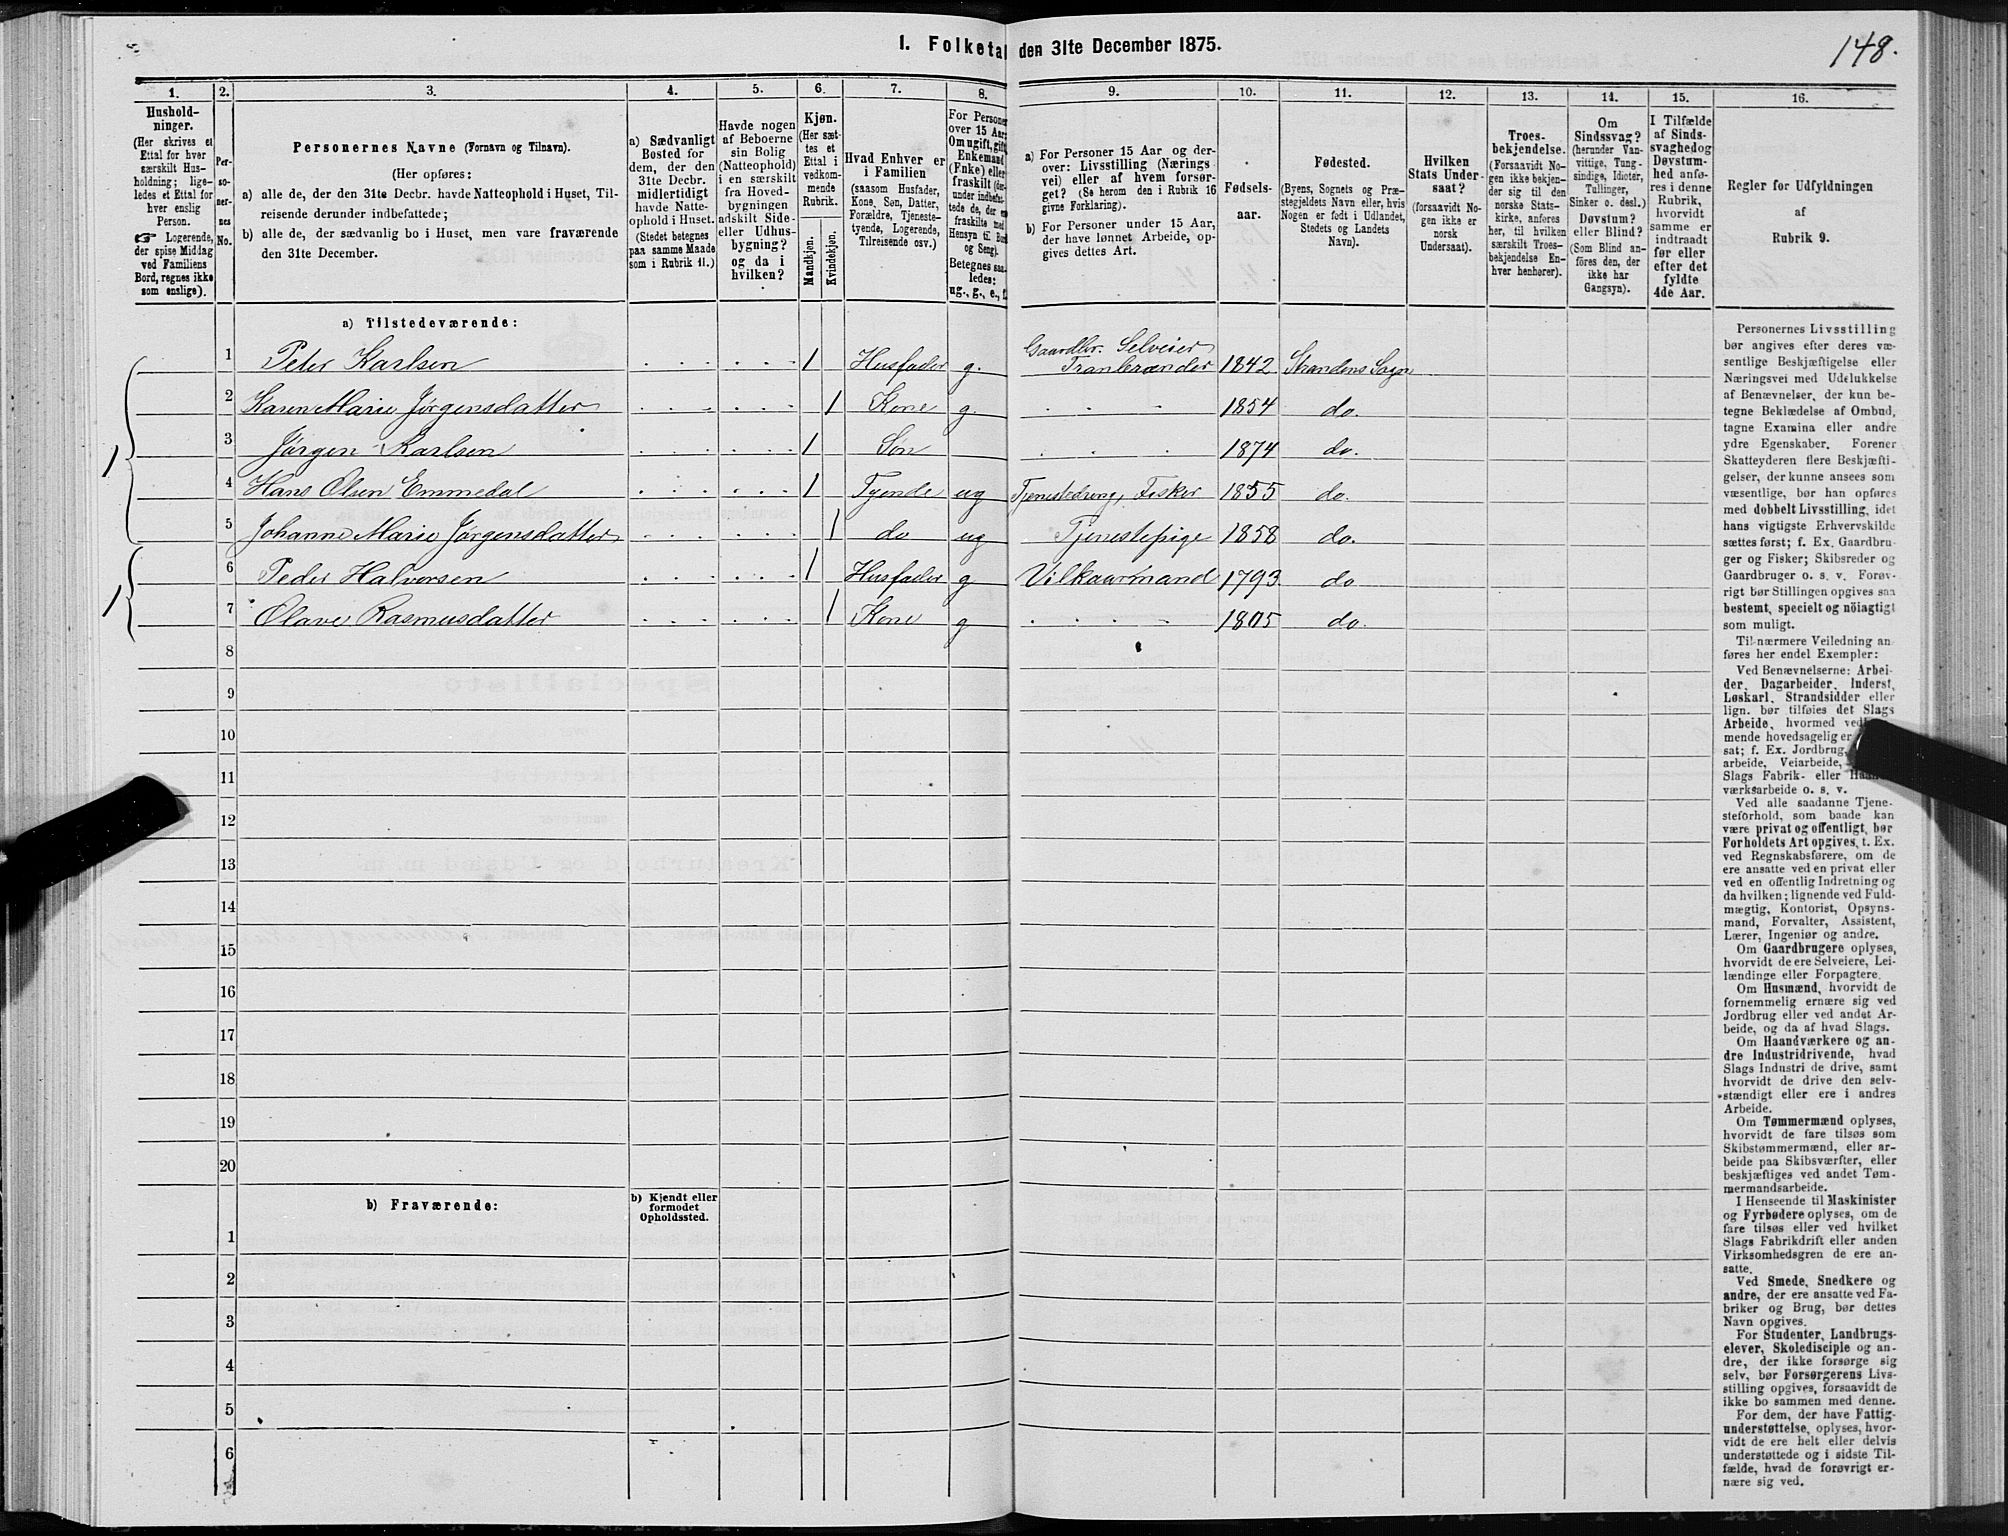 148.
I. Folketal den 31te December 1875.
1. 2. 3. 4. 5. 6. 7. 8. 9. 10. 11. 12. 13. 14. 15. 16.
Hushold-
ninger.
(Her skrives et
Ettal for hver
særskilt Hus-
holdning; lige-
ledes et Ettal for
hver enslig
Person.
☞ Logerende,
der spise Middag
ved Familiens
Bord, regnes ikke
som enslige).
Per-
so-
ner-
nes
No.
Personernes Navne (Fornavn og Tilnavn).
(Her opføres:
a) alle de, der den 31te Decbr. havde Natteophold i Huset, Til-
reisende derunder indbefattede;
b) alle de, der sædvanlig bo i Huset, men vare fraværende
den 31te December.
a) Sædvanligt
Bosted for
dem, der den
31te Decbr.
midlertidigt
havde Natte-
ophold i Huset.
(Stedet betegnes
paa samme Maade
som i Rubrik 11.)
Havde nogen
af Beboerne
sin Bolig
(Natteophold)
i en særskilt
fra Hoved-
bygningen
adskilt Side-
eller Udhus-
bygning?
og da i
hvilken?
Kjøn.
(Her sæt-
tes et
Ettal i
vedkom-
mende
Rubrik.
Mandkjøn.
Kvindekjøn.
Hvad Enhver er
i Familien
(saasom Husfader,
Kone, Søn, Datter,
Forældre, Tjeneste-
tyende, Logerende,
Tilreisende osv.)
For Personer
over 15 Aar:
Om ugift, gift,
Enkemand
(Enke) eller
fraskilt (der-
under indbefat-
tede de, der er
fraskilte med
Hensyn til Bord
og Seng).
Betegnes saa-
ledes:
ug., g., e., f.
a) For Personer 15 Aar og der-
over: Livsstilling (Nærings
vei) eller af hvem forsør-
get? (Se herom den i Rubrik 16
givne Forklaring).
b) For Personer under 15 Aar,
der have lønnet Arbeide, op-
gives dettes Art.
Fødsels-
aar.
Fødested.
(Byens, Sognets og Præ-
stegjeldets Navn eller, hvis
Nogen er født i Udlandet,
Stedets og Landets
Navn).
Hvilken
Stats Under-
saat?
(forsaavidt No-
gen ikke er
norsk
Undersaat).
Troes-
bekjendelse.
(Forsaavidt No-
gen ikke bekjen-
der sig til den
norske Stats-
kirke, anføres
her, til hvilken
særskilt Troes-
bekjendelse En-
hver henhører).
Om
Sindssvag?
(herunder Van-
vittige, Tung-
sindige, Idioter,
Tullinger,
Sinker o. desl.)
Døvstum?
eller Blind?
(Som Blind an-
føres den, der
ikke har
Gangsyn).
I Tilfælde
af Sinds-
svaghed og
Døvstum-
hed anfø-
res i denne
Rubrik,
hvorvidt
samme er
indtraadt
før eller
efter det
fyldte
4de Aar.
Regler for Udfyldningen
af
Rubrik 9.
a) Tilstedeværende:
Gaardbr. Selveier
1 Peder Karlsen 1 Husfader g. Tranbrænder 1842 Strandens Sogn
2 Karen Marie Jørgensdatter 1 Kone g. 1854 do.
1
3 Jørgen Karlsen 1 Søn 1874 do.
4 Hans Olsen Emmedal 1 Tyende ug Tjenestedreng, Fisker 1855 do.
5 Johanne Marie Jørgensdatter 1 do ug Tjenestepige 1858 do.
1
6 Peder Halvorsen 1 Husfader g Vilkaarmand 1793. do
7 Olave Rasmusdatter 1 Kone g 1805 do.
8
9
10
11
12
13
14
15
16
17
18
19
20
b) Fraværende:
b) Kjendt eller
formodet
Opholdssted.
1
2
3
4
5
6
Personernes Livsstilling
bør angives efter deres væ-
sentlige Beskjæftigelse eller
Næringsvei med Udelukkelse
af Benævnelser, der kun be-
tegne Beklædelse af Ombud,
tagne Examina eller andre
ydre Egenskaber. Forener
Skatteyderen flere Beskjæfti-
gelser, der kunne ansees som
væsentlige, bør han opføres
med dobbelt Livsstilling, idet
hans vigtigste Erhvervskilde
sættes først; f. Ex. Gaardbru-
ger og Fisker; Skibsreder og
Gaardbruger o. s. v. Forøv-
rigt bør Stillingen opgives saa
bestemt, specielt og nöiagtigt
som muligt.
Til nærmere Veiledning an-
føres her endel Exempler:
Ved Benævnelserne: Arbei-
der, Dagarbeider, Inderst,
Løskarl, Strandsidder eller
lign. bør tilføies det Slags
Arbeide, hvormed ved
mende hovedsagelig er
sat; f. Ex. Jordbrug,
arbeide, Veiarbeide,
Slags Fabrik- eller Haand-
værksarbeide o. s. v.
Ved alle saadanne Tjene-
steforhold, som baade kan
være privat og offentligt, bør
Forholdets Art opgives, f. Ex.
ved Regnskabsførere, om de
ere ansatte ved en privat eller
ved en offentlig Indretning og
da hvilken; lignende ved Fuld-
mægtig, Kontorist, Opsyns-
mand, Forvalter, Assistent,
Lærer, Ingeniør og andre.
Om Gaardbrugere oplyses,
hvorvidt de ere Selveiere, Lei-
lændinge eller Forpagtere.
Om Husmænd, hvorvidt de
fornemmelig ernære sig ved
Jordbrug eller ved andet Ar-
beide, og da af hvad Slags.
Om Haandværkere og an-
dre Industridrivende, hvad
Slags Industri de drive, samt
hvorvidt de drive den selv-
stændigt eller ere i andres
Arbeide.
Om Tømmermænd oplyses,
hvorvidt de fare tilsøs som
Skibstømmermænd, eller ar-
beide paa Skibsværfter, eller
beskjæftiges ved andet Tøm-
mermandsarbeide.
I Henseende til Maskinister
og Fyrbødere oplyses, om de
fare tilsøs eller ved hvilket
Slags Fabrikdrift eller anden
Virksomhedsgren de ere an-
satte.
Ved Smede, Snedkere og
andre, der ere ansatte ved Fa-
briker og Brug, bør dettes
Navn opgives.
For Studenter, Landbrugs-
elever, Skoledisciple og an-
dre, der ikke forsørge sig
selv, bør Forsørgerens Livs-
stilling opgives, forsaavidt de
ikke bo sammen med denne.
For dem, der have Fattig-
understøttelse, oplyses, hvor-
vidt de ere helt eller delvis
understøttede og i sidste Til-
fælde, hvad de forøvrigt er-
nære sig ved.